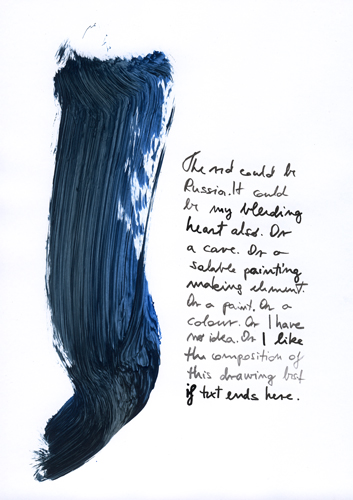 The red could be
Russia. It could
be my bleeding
heart also. Or
a cave. Or a
salable painting
making element.
Or a paint. Or a
colour. Or I have
no idea. Or I like
the composition of
this drawing but
if text ends here.